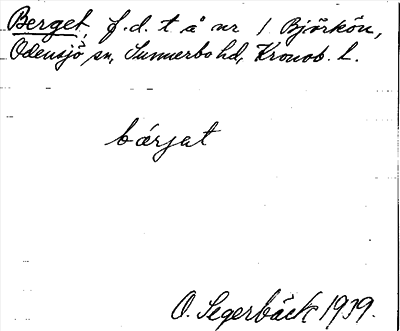 Berget, f.d. t å nr 1 Björkön,
Odensjö sn, Sunnerbo hd, Kronob. l.
bärjat
O. Segerbäck 1939.